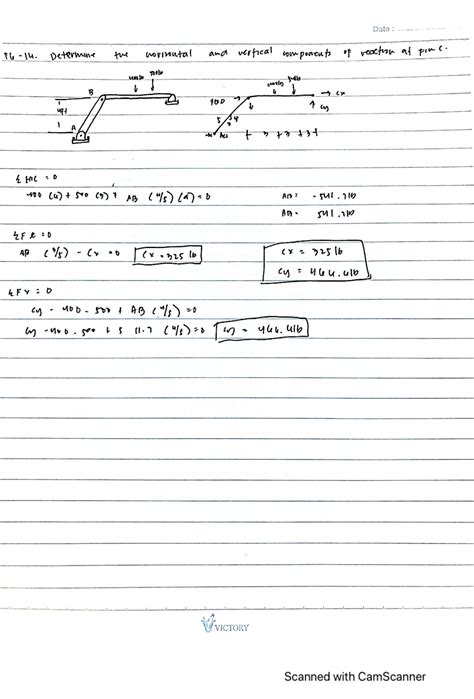 Date :
F6-14. Determine the horizontal and vertical components of reaction at pin C.
400lb 500lb
B
4ft
A
400lb 500lb
Cx
Cy
5 3 4
3 + 3 + 3
Σ MC = 0
-400 (6) + 500 (3) + AB (4/5) (9) = 0
AB = - 541.7lb
AB = 541.7lb
Σ F x = 0
AB (3/5) - Cx = 0 Cx = 325 lb
Cx = 325 lb
Cy = 466.6lb
Σ F y = 0
Cy - 400 - 500 + AB (4/5) = 0
Cy - 400 - 500 + 5 11.7 (4/5) = 0 Cy = 466.6lb
VICTORY
Scanned with CamScanner